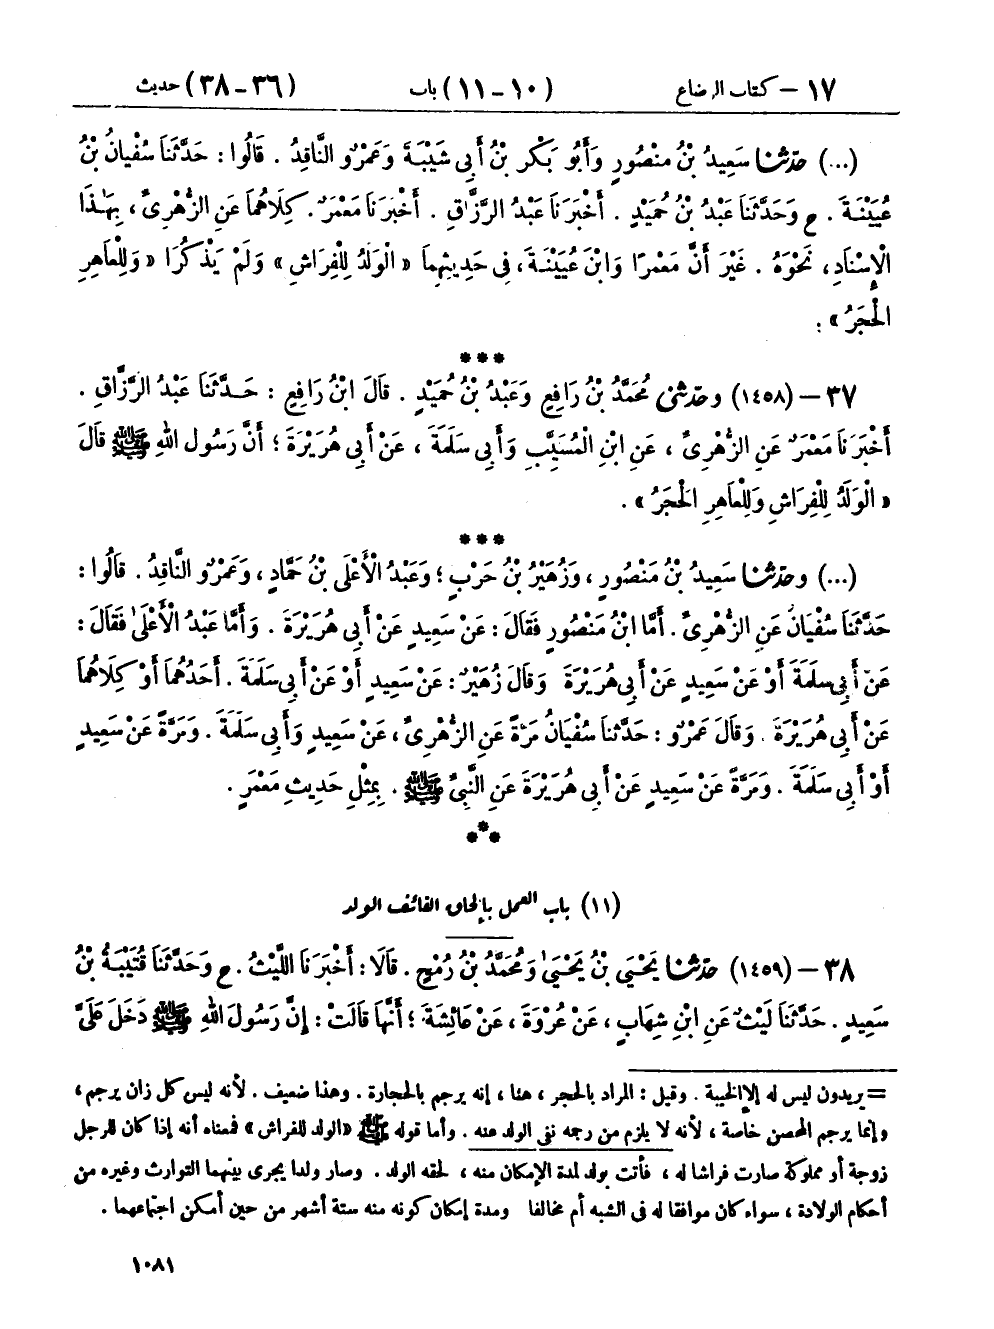 ١٧ – كتاب الرضاع (١٠-١١) باب (٣٦-٣٨) حديث
(...) حدثنا سَعِيدُ بْنُ مَنْصُورٍ وَأَبُو بَكْرِ بْنُ أَبِي شَيْبَةَ وَعَمْرٌو النَّاقِدُ . قَالُوا : حَدَّثَنَا سُفْيَانُ بْنُ
عُيَيْنَةَ . ح وَحَدَّثَنَا عَبْدُ بْنُ حُمَيْدٍ . أَخْبَرَنَا عَبْدُ الرَّزَّاقِ . أَخْبَرَنَا مَعْمَرٌ . كِلَاهُمَا عَنِ الزُّهْرِىِّ ، بِهٰذَا
الْإِسْنَادِ ، نَحْوَهُ . غَيْرَ أَنَّ مَعْمَرًا وَابْنَ عُيَيْنَةَ ، فِى حَدِيثِهِمَا « الْوَلَدُ لِلْفِرَاشِ » وَلَمْ يَذْكُرَا « وَلِلْعَاهِرِ
الْحَجَرُ » :
***
٣٧ – (١٤٥٨) وحدثنى مُحَمَّدُ بْنُ رَافِعٍ وَعَبْدُ بْنُ حُمَيْدٍ . قَالَ ابْنُ رَافِعٍ : حَدَّثَنَا عَبْدُ الرَّزَّاقِ .
أَخْبَرَنَا مَعْمَرٌ عَنِ الزُّهْرِىِّ ، عَنِ ابْنِ الْمُسَيَّبِ وَأَبِى سَلَمَةَ ، عَنْ أَبِى هُرَيْرَةَ ؛ أَنَّ رَسُولَ اللهِ ﷺ قَالَ
« الْوَلَدُ لِلْفِرَاشِ وَلِلْعَاهِرِ الْحَجَرُ » .
***
(...) وحدثنا سَعِيدُ بْنُ مَنْصُورٍ ، وَزُهَيْرُ بْنُ حَرْبٍ ؛ وَعَبْدُ الْأَعْلَى بْنُ حَمَّادٍ ، وَعَمْرٌو النَّاقِدُ . قَالُوا :
حَدَّثَنَا سُفْيَانُ عَنِ الزُّهْرِىِّ . أَمَّا ابْنُ مَنْصُورٍ فَقَالَ : عَنْ سَعِيدٍ عَنْ أَبِى هُرَيْرَةَ . وَأَمَّا عَبْدُ الْأَعْلَىٰ فَقَالَ :
عَنْ أَبِى سَلَمَةَ أَوْ عَنْ سَعِيدٍ عَنْ أَبِى هُرَيْرَةَ وَقَالَ زُهَيْرٌ : عَنْ سَعِيدٍ أَوْ عَنْ أَبِى سَلَمَةَ . أَحَدُهُمَا أَوْ كِلَاهُمَا
عَنْ أَبِى هُرَيْرَةَ . وَقَالَ عَمْرٌو : حَدَّثَنَا سُفْيَانُ مَرَّةً عَنِ الزُّهْرِىِّ ، عَنْ سَعِيدٍ وَأَبِى سَلَمَةَ . وَمَرَّةً عَنْ سَعِيدٍ
أَوْ أَبِى سَلَمَةَ . وَمَرَّةً عَنْ سَعِيدٍ عَنْ أَبِى هُرَيْرَةَ عَنِ النَّبِىِّ ﷺ . بِمِثْلِ حَدِيثِ مَعْمَرٍ .
***
(١١) باب العمل بإلحاق القائف الولد
٣٨ – (١٤٥٩) حدثنا يَحْيَى بْنُ يَحْيَىٰ وَمُحَمَّدُ بْنُ رُمْحٍ . قَالَا : أَخْبَرَنَا اللَّيْثُ . ح وَحَدَّثَنَا قُتَيْبَةُ بْنُ
سَعِيدٍ . حَدَّثَنَا لَيْثٌ عَنِ ابْنِ شِهَابٍ ، عَنْ عُرْوَةَ ، عَنْ عَائِشَةَ ؛ أَنَّهَا قَالَتْ : إِنَّ رَسُولَ اللهِ ﷺ دَخَلَ عَلَىَّ
= يريدون ليس له إلا الخيبة . وقيل : المراد بالحجر ، هنا ، إنه يرجم بالحجارة . وهذا ضعيف . لأنه ليس كل زان يرجم ،
وإنما يرجم المحصن خاصة ، لأنه لا يلزم من رجمه نفى الولد عنه . وأما قوله ﷺ « الولد للفراش » فمعناه أنه إذا كان للرجل
زوجة أو مملوكة صارت فراشا له ، فأتت بولد لمدة الإمكان منه ، لحقه الولد . وصار ولدا يجرى بينهما التوارث وغيره من
أحكام الولادة ، سواء كان موافقا له فى الشبه أم مخالفا ومدة إمكان كونه منه ستة أشهر من حين أمكن اجتماعهما .
١٠٨١